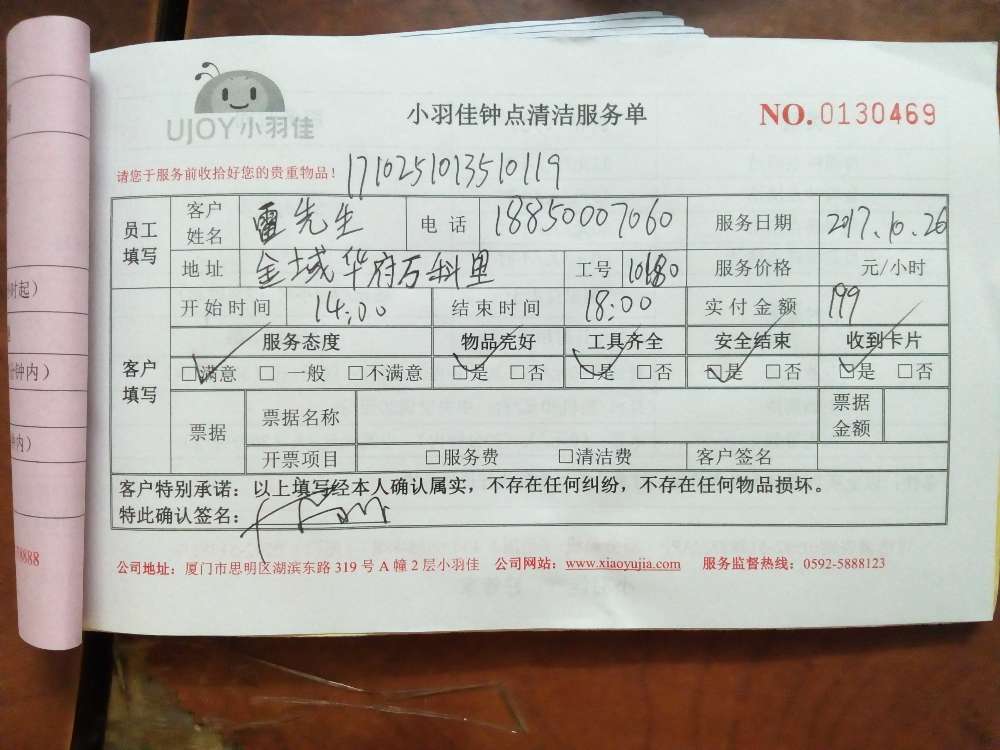 UJOY小羽佳
小羽佳钟点清洁服务单
NO.0130469
请您于服务前收拾好您的贵重物品！
171025101351 0119
员工填写 客户姓名 雷先生 电话 18850007060 服务日期 2017.10.26
地址 金域华府万科里 工号 10180 服务价格 元/小时
客户填写 开始时间 14:00 结束时间 18:00 实付金额 199
服务态度 物品完好 工具齐全 安全结束 收到卡片
□满意 □一般 □不满意 □是 □否 □是 □否 □是 □否 □是 □否
票据 票据名称 票据金额
开票项目 □服务费 □清洁费 客户签名
客户特别承诺：以上填写经本人确认属实，不存在任何纠纷，不存在任何物品损坏。
特此确认签名：
公司地址：厦门市思明区湖滨东路 319 号 A 幢 2 层小羽佳 公司网站：www.xiaoyujia.com 服务监督热线：0592-5888123
时起）
分钟内）
钟内）
8888